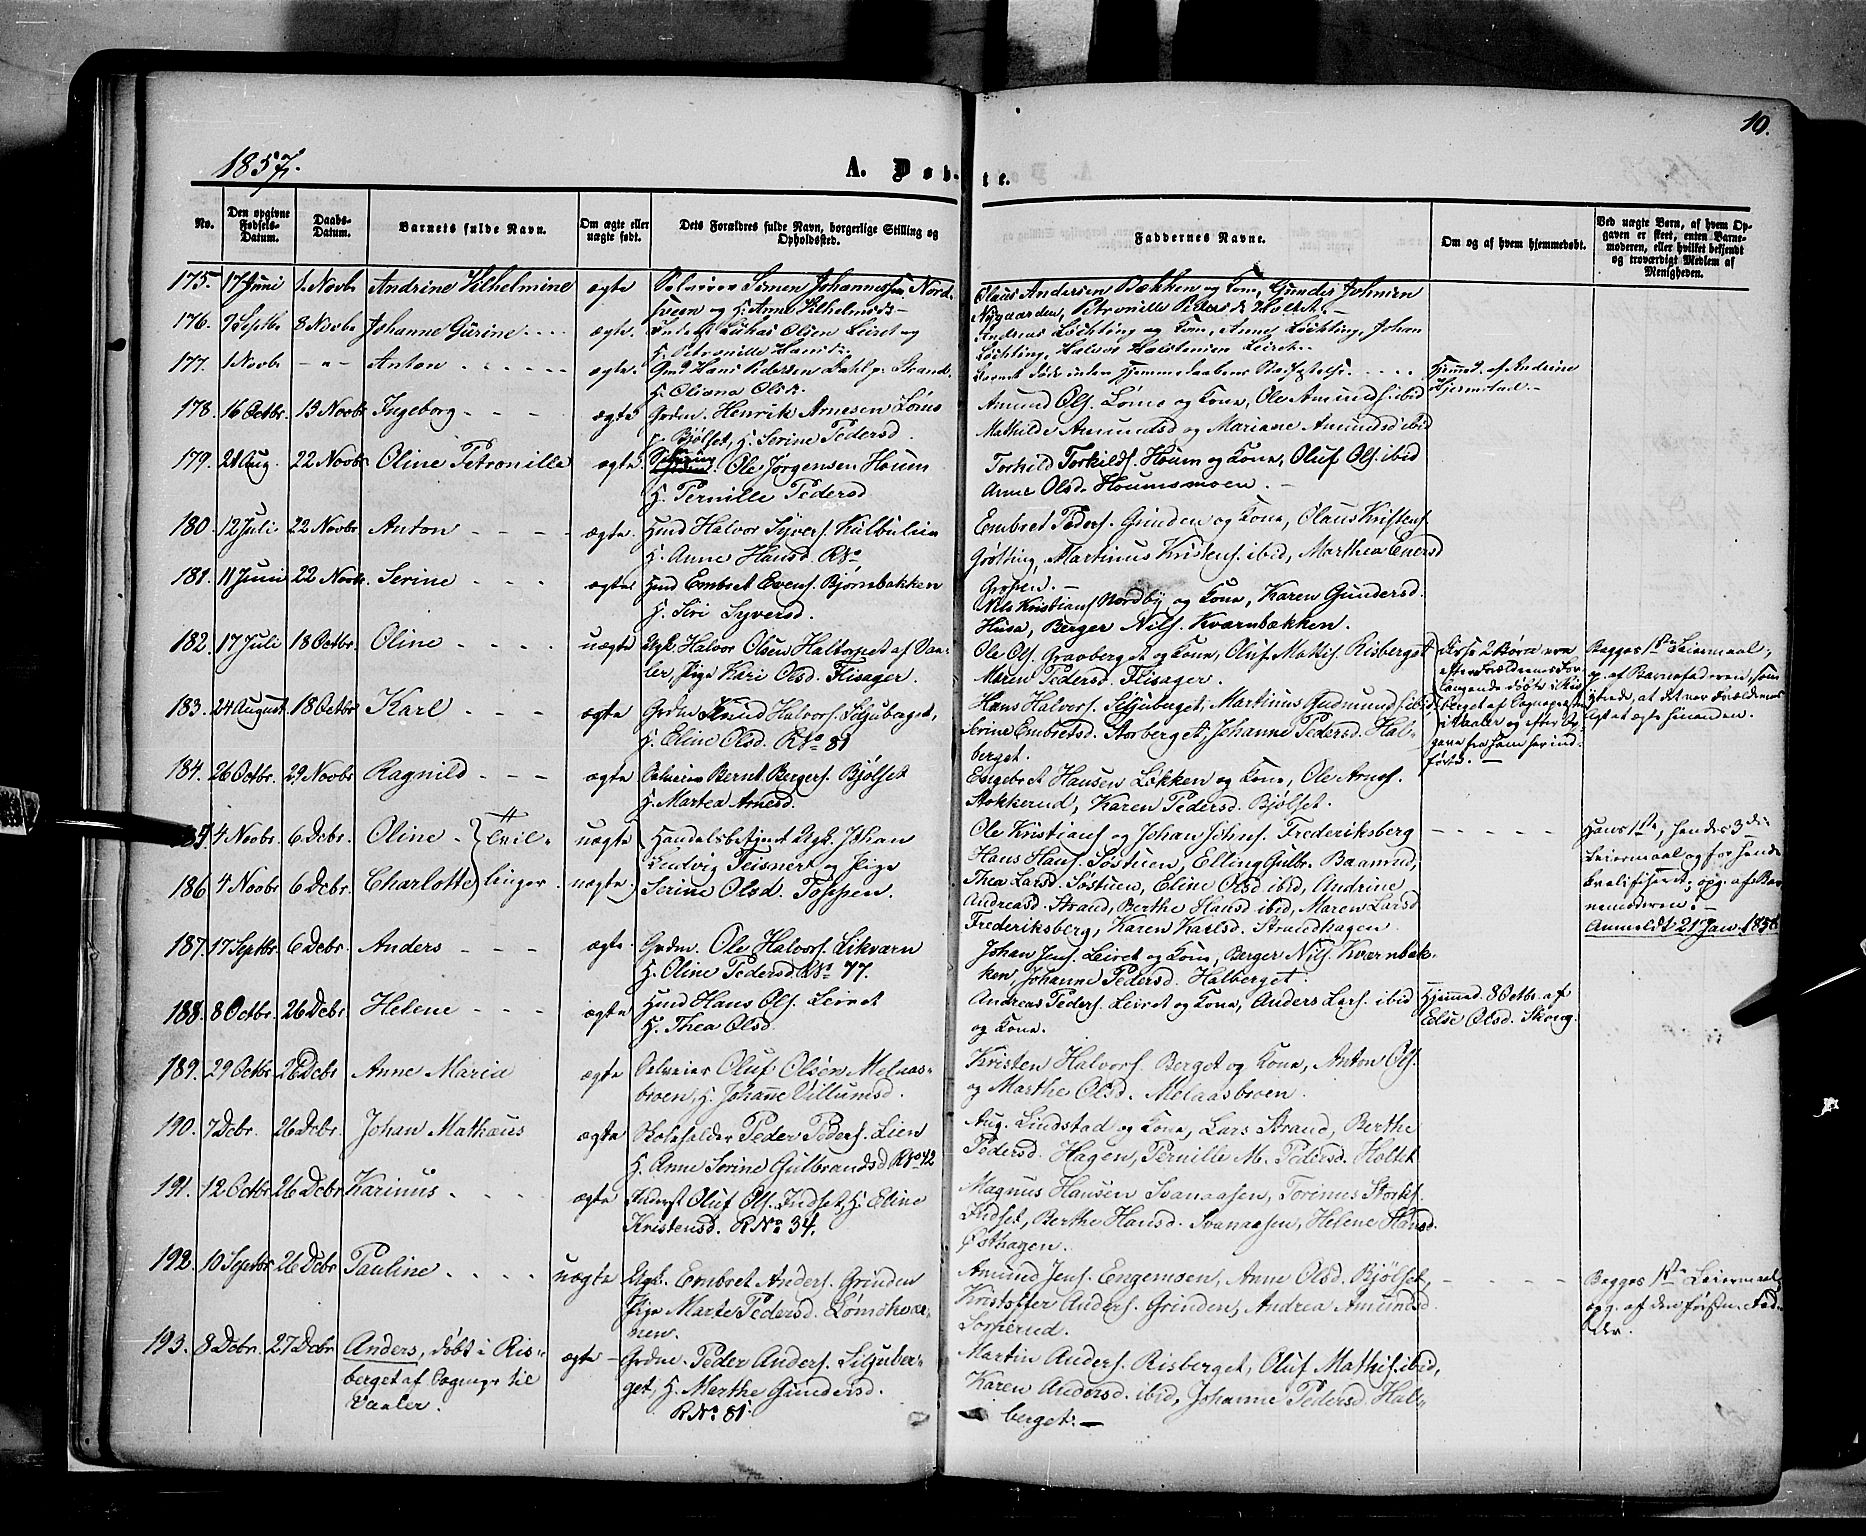 10.
1857.
A. Døb-te.
No.
Den opgivne Fødsels-Datum.
Daabs-Datum.
Barnets fulde Navn.
Om ægte eller uægte født.
Dets Forældres fulde Navn, borgerlige Stilling og Opholdssted.
Faddernes Navne.
Om og af hvem hjemmedøbt.
Ved uægte Børn, af hvem Opgaven er skeet, enten Barnemoderen, eller hvilket bekjendt og troværdigt Medlem af Menigheden.
175. 17 Juni 1 Novbr Andrine Vilhelmine ægte Selveier Simen Johannessen Nord-
sveen og H. Anne Vilhelmsd.
Claus Andersen Bækken og Kone, Gunder Johnsen
Nygaarden, Petronille Pedersd. Holtet.
176. 9 Septbr 8 Novbr Johanne Gurine ægte. Lukas Olsen Leiret og
H. Petronille Hansd.
Andreas Løchting og Kone, Anne Løchting, Johan
Løchting, Halvor Halstensen Leiret.
177. 1 Novbr - " - Anton ægte. Hans Pedersen Dahl p. Strand.
H. Oliana Olsd.
Barnet døde inden Hjemmedaabens Stadfæstelse.
Hjemmed. af Andrine
Hjermstad.
178. 16 Octbr. 13 Novbr Ingeborg ægte Grdm. Henrik Arnesen Lømo
p. Bjølset, H. Serine Pedersd.
Amund Ols. Lømo og Kone, Ole Amunds. ibid
Mathilde Amundsd og Mariane Amundsd ibid
179. 21 Aug. 22 Novbr Oline Petronille ægte Ole Jørgensen Houm
H. Pernille Pedersd
Torkild Torkilds. Houm og Kone, Oluf Ols. ibid
Anne Olsd. Houmsmoen.
180. 12 Juli 22 Novbr Anton ægte. Hmd Halvor Syvers. Kulbulein
H. Anne Hansd. RNo
Embret Peders. Grinden og Kone, Olaus Kristens.
Grøtting, Martinus Kristens. ibid, Marthea Enersd
Grøsen.
181. 11 Juni 22 Novbr. Serine ægte Hmd Embret Evens. Bjørnbakken
H. Siri Syversd.
Nils Kristians. Nordby og Kone, Karen Gundersd.
Husa, Berger Nils. Kværnbækken.
182. 17 Juli 18 Octbr. Oline uægte Ugk. Halvor Olsen Haltorpet af Vaa-
ler, Pige Kari Olsd. Flisager.
Ole Ols. Gravberget og Kone, Oluf Mattis. Risberget
Maren Pedersd. Flisager.
Disse 2 Børn ere
efter Forældrenes For-
langende døbte i Ris-
berget af Sognepræsten
i Vaaler og efter Op-
gave fra ham her ind-
førte.
Begges 1ste Leiermaal,
op. af Barnefaderen, som
ytrede, at det var Forældrenes
Agt at ægte hinanden.
183. 24 August 18 Octbr Karl ægte Grdm Knud Halvors. Siljuberget,
H. Eline Olsd. RNo 81
Hans Halvors. Siljuberget, Martinus Gudmunds ibid,
Serine Embretsd. Storberget, Johanne Pedersd. Hal-
berget.
184. 26 Octbr. 29 Novbr Ragnild ægte Selveier Bernt Bergers. Bjølset
H. Martea Arnesd.
Engebret Hansen Løkken og Kone, Ole Arnes.
Stokkerud, Karen Pedersd. Bjølset.
185 4 Novbr. 6 Dcbr. Oline Tvil- uægte Handelsbetjent Ugk. Johan
Ludvig Teisnert og Pige
186 4 Novbr 6 Dcbr. Charlotte linger. uægte Serine Olsd. Toppen.
Ole Kristians. og Johan Johns. Frederiksberg
Hans Hans. Søstuen, Elling Gulbr. Baanrud,
Thea Larsd. Søstuen, Eline Olsd ibid, Andrine
Andreasd. Strand, Berthe Hansd ibid, Maren Larsd
Frederiksberg, Karen Karlsd. Strandhagen.
Hans 1ste, hendes 3die
Leiermaal og for hende
kvalificeret; opg. af Bar-
nemoderen.
Anmeldt 21 Jan. 1858.
187. 17 Septbr 6 Dcbr. Anders ægte. Grdm. Ole Halvors. Likværn
H. Oline Pedersd. RNo 77.
Johan Jens. Leiret og Kone, Berger Nils. Kværnbæk-
ken, Johanne Pedersd. Halberget.
188. 8 Octbr. 26 Dcbr Helene ægte Hmd Hans Ols. Leiret
H. Thea Olsd.
Andreas Peders. Leiret og Kone, Anders Lars. ibid
og Kone.
Hjemmed. 8 Octbr. af
Else Olsd. Skoug.
189. 29 Octbr 26 Dcbr Anne Marie ægte Selveier Oluf Olsen Melaas-
broen, H. Johanne Villumsd.
Kristen Halvors. Berget og Kone, Anton Ols.
og Marthe Olsd. Melaasbroen.
190. 7 Dcbr. 26 Dcbr. Johan Mathæus ægte Skoleholder Peder Peders. Lien
H. Anne Serine Gulbrandsd RNo 42
Aug. Lindstad og Kone, Lars Strand, Berthe
Pedersd. Hagen, Pernille M. Pedersd. Holtet
191. 12 Octbr. 26 Dcbr Karinus ægte Inderst Oluf Ols. Indset, H. Eline
Kristensd. RNo 34.
Magnus Hansen Svanaasen, Torinus Stork.
Indset, Berthe Hansd. Svanaasen, Helene Hansd.
Østhagen.
192. 10 Septbr 26 Dcbr. Pauline uægte Ugk. Embret Anders. Grinden
Pige Marte Pedersd. Lømokvær-
nen.
Amund Jens. Engemoen, Anne Olsd. Bjølset,
Kristoffer Anders. Grinden, Andrea Amundsd.
Sorperud.
Begges 1ste Leiermaal,
opg. af den første Fad-
der.
193. 8 Dcbr. 27 Dcbr Anders, døbt i Ris-
berget af Sognepr. til
Vaaler.
ægte Grdm. Peder Anders. Siljuber-
get, H. Marthe Gundersd.
RNo 81.
Martin Anders. Risberget, Oluf Mathis. ibid,
Karen Andersd. ibid, Johanne Pedersd. Hal-
berget.